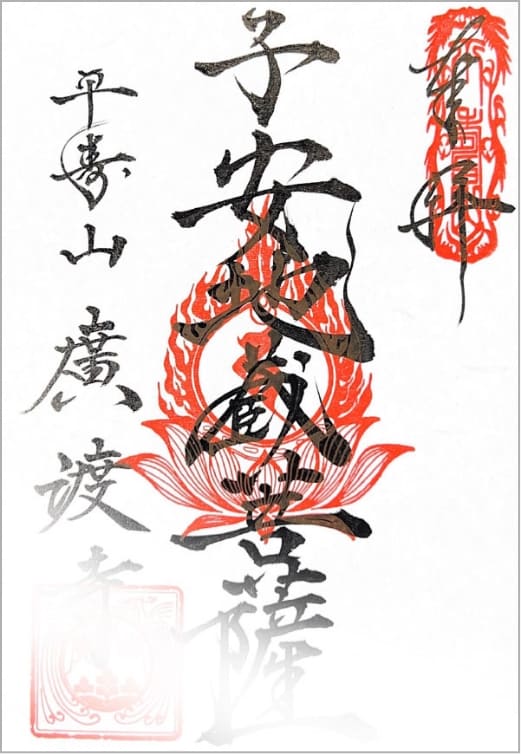 奉拝
子安地蔵菩薩
平寿山 廣渡寺